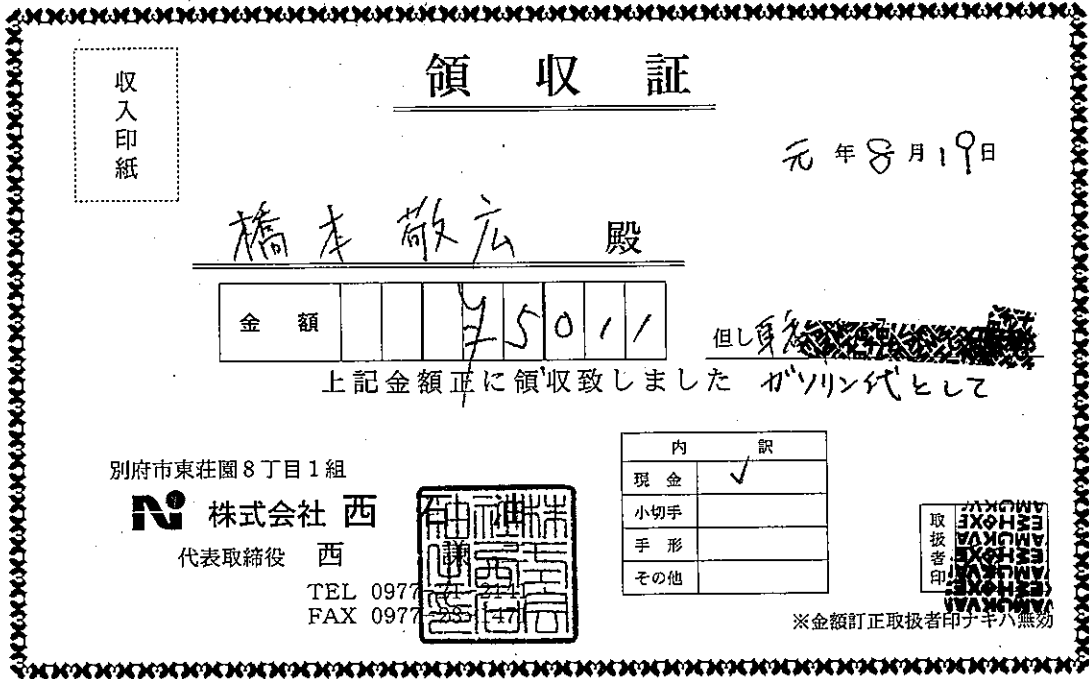 収入印紙
領収証
元年8月19日
橋本 敬広 殿
金額 ¥5011
但し
上記金額正に領収致しました ガソリン代として
別府市東荘園8丁目1組
株式会社 西
代表取締役 西 謙
TEL 0977
FAX 0977
内訳
現金 ✓
小切手
手形
その他
取扱者印
※金額訂正取扱者印ナキハ無効